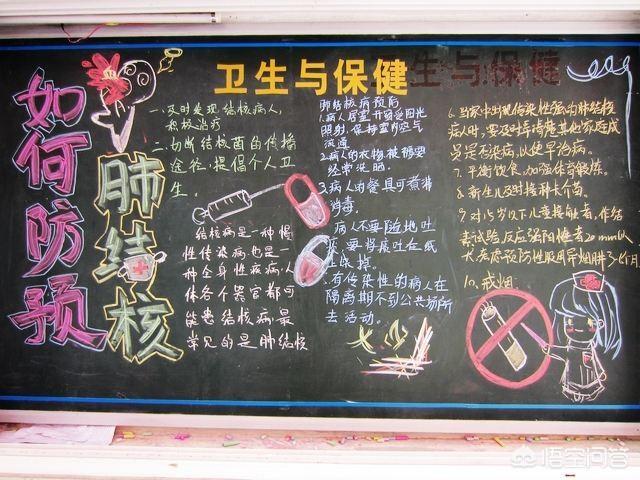 卫生与保健
生与保健
如何防预
肺结核
一、及时发现结核病人，
积极治疗
二、切断结核菌的传播
途径，提倡个人卫
生
结核病是一种慢
性传染病也是一
种全身性疾病，人
体各个器官都可
能患结核病，最
常见的是肺结核
肺结核病预防
1.病人居室开窗受阳光
照射，保持室内空气
流通
2.病人的衣物、被褥要
经常洗晒。
3.病人的餐具可煮沸
消毒。
病人不要随地吐
痰，要将痰吐在纸
上
有传染性的病人在
隔离期不到公共场所
去活动。
6.当家中出现传染性强的肺结核
病人时，要及时
员是否感染病，以便早治病。
7.平衡饮食，加强体育锻炼。
8.新生儿及时接种卡介苗。
9.对15岁以下儿童接触者，作结
素试验，反应强阳性者20mm以
大者应预防性服用异烟肼6个月。
10、戒烟。
悟空问答